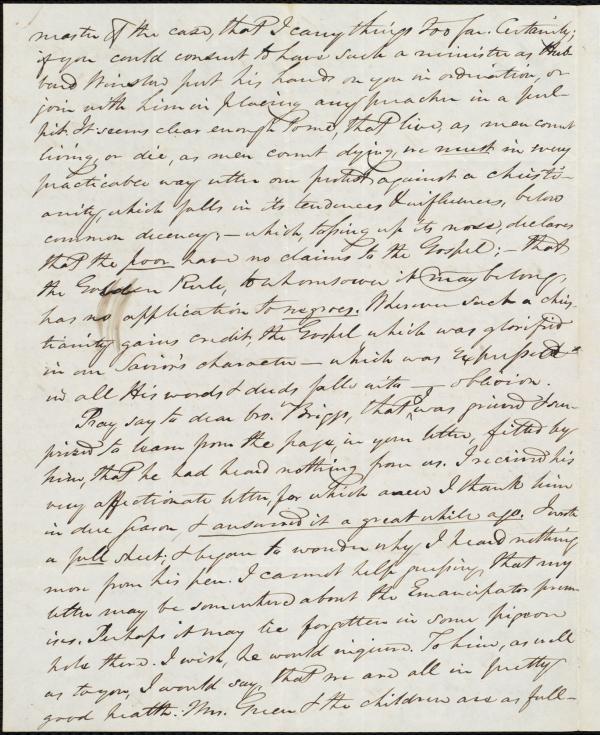 master of the case, that I carry things too far. Certainly;
if you could consent to have such a minister as Hub-
bard Winslow put his hands on you in ordination, or
join with him in placing any preacher in a pul-
pit. It seems clear enough to me, that live, as men count
living, or die, as men count dying, we must in every
practicable way utter our protest against a christi-
anity, which falls in its tendencies & influences, below
common decency; — which, turning up its nose, declares
that the poor have no claims to the Gospel; — that
the Golden Rule, to whomsoever it may belong,
has no application to negroes. Wherever such a chris-
tianity gains credit, the Gospel which was glorified
in our Savior's character — which was expressed
in all His words & deeds falls into — oblivion.
Pray say to dear bro. Briggs, that I was grieved & sur-
prized to learn from the page, in your letter, filled by
him, that he had heard nothing from us. I received his
very affectionate letter, for which anew I thank him
in due season, & answered it a great while ago. I wrote
a full sheet, & began to wonder why I heard nothing
more from his pen. I cannot help guessing, that my
letter may be somewhere about the Emancipator prem-
ises. Perhaps it may lie forgotten in some pigeon
hole there. I wish, he would inquire. To him, as well
as to you, I would say, that we are all in pretty
good health. Mrs. Green & the children are as full-